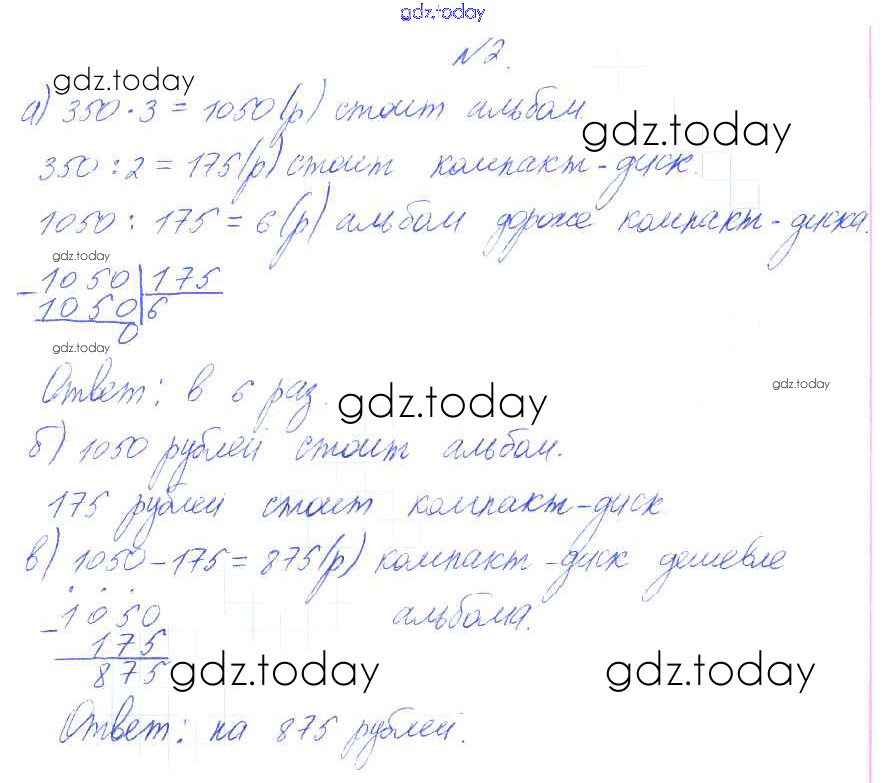 gdz.today
№2.
gdz.today
а) 350 · 3 = 1050 (р) стоит альбом.
gdz.today
350 : 2 = 175 (р) стоит компакт-диск.
1050 : 175 = 6 (р) альбом дороже компакт-диска.
gdz.today
- 1050 | 175
1050 | 6
0
gdz.today
gdz.today
Ответ: в 6 раз.
gdz.today
б) 1050 рублей стоит альбом.
175 рублей стоит компакт-диск
в) 1050 - 175 = 875 (р) компакт-диск дешевле
альбома.
- 1050
175
875
gdz.today
gdz.today
Ответ: на 875 рублей.